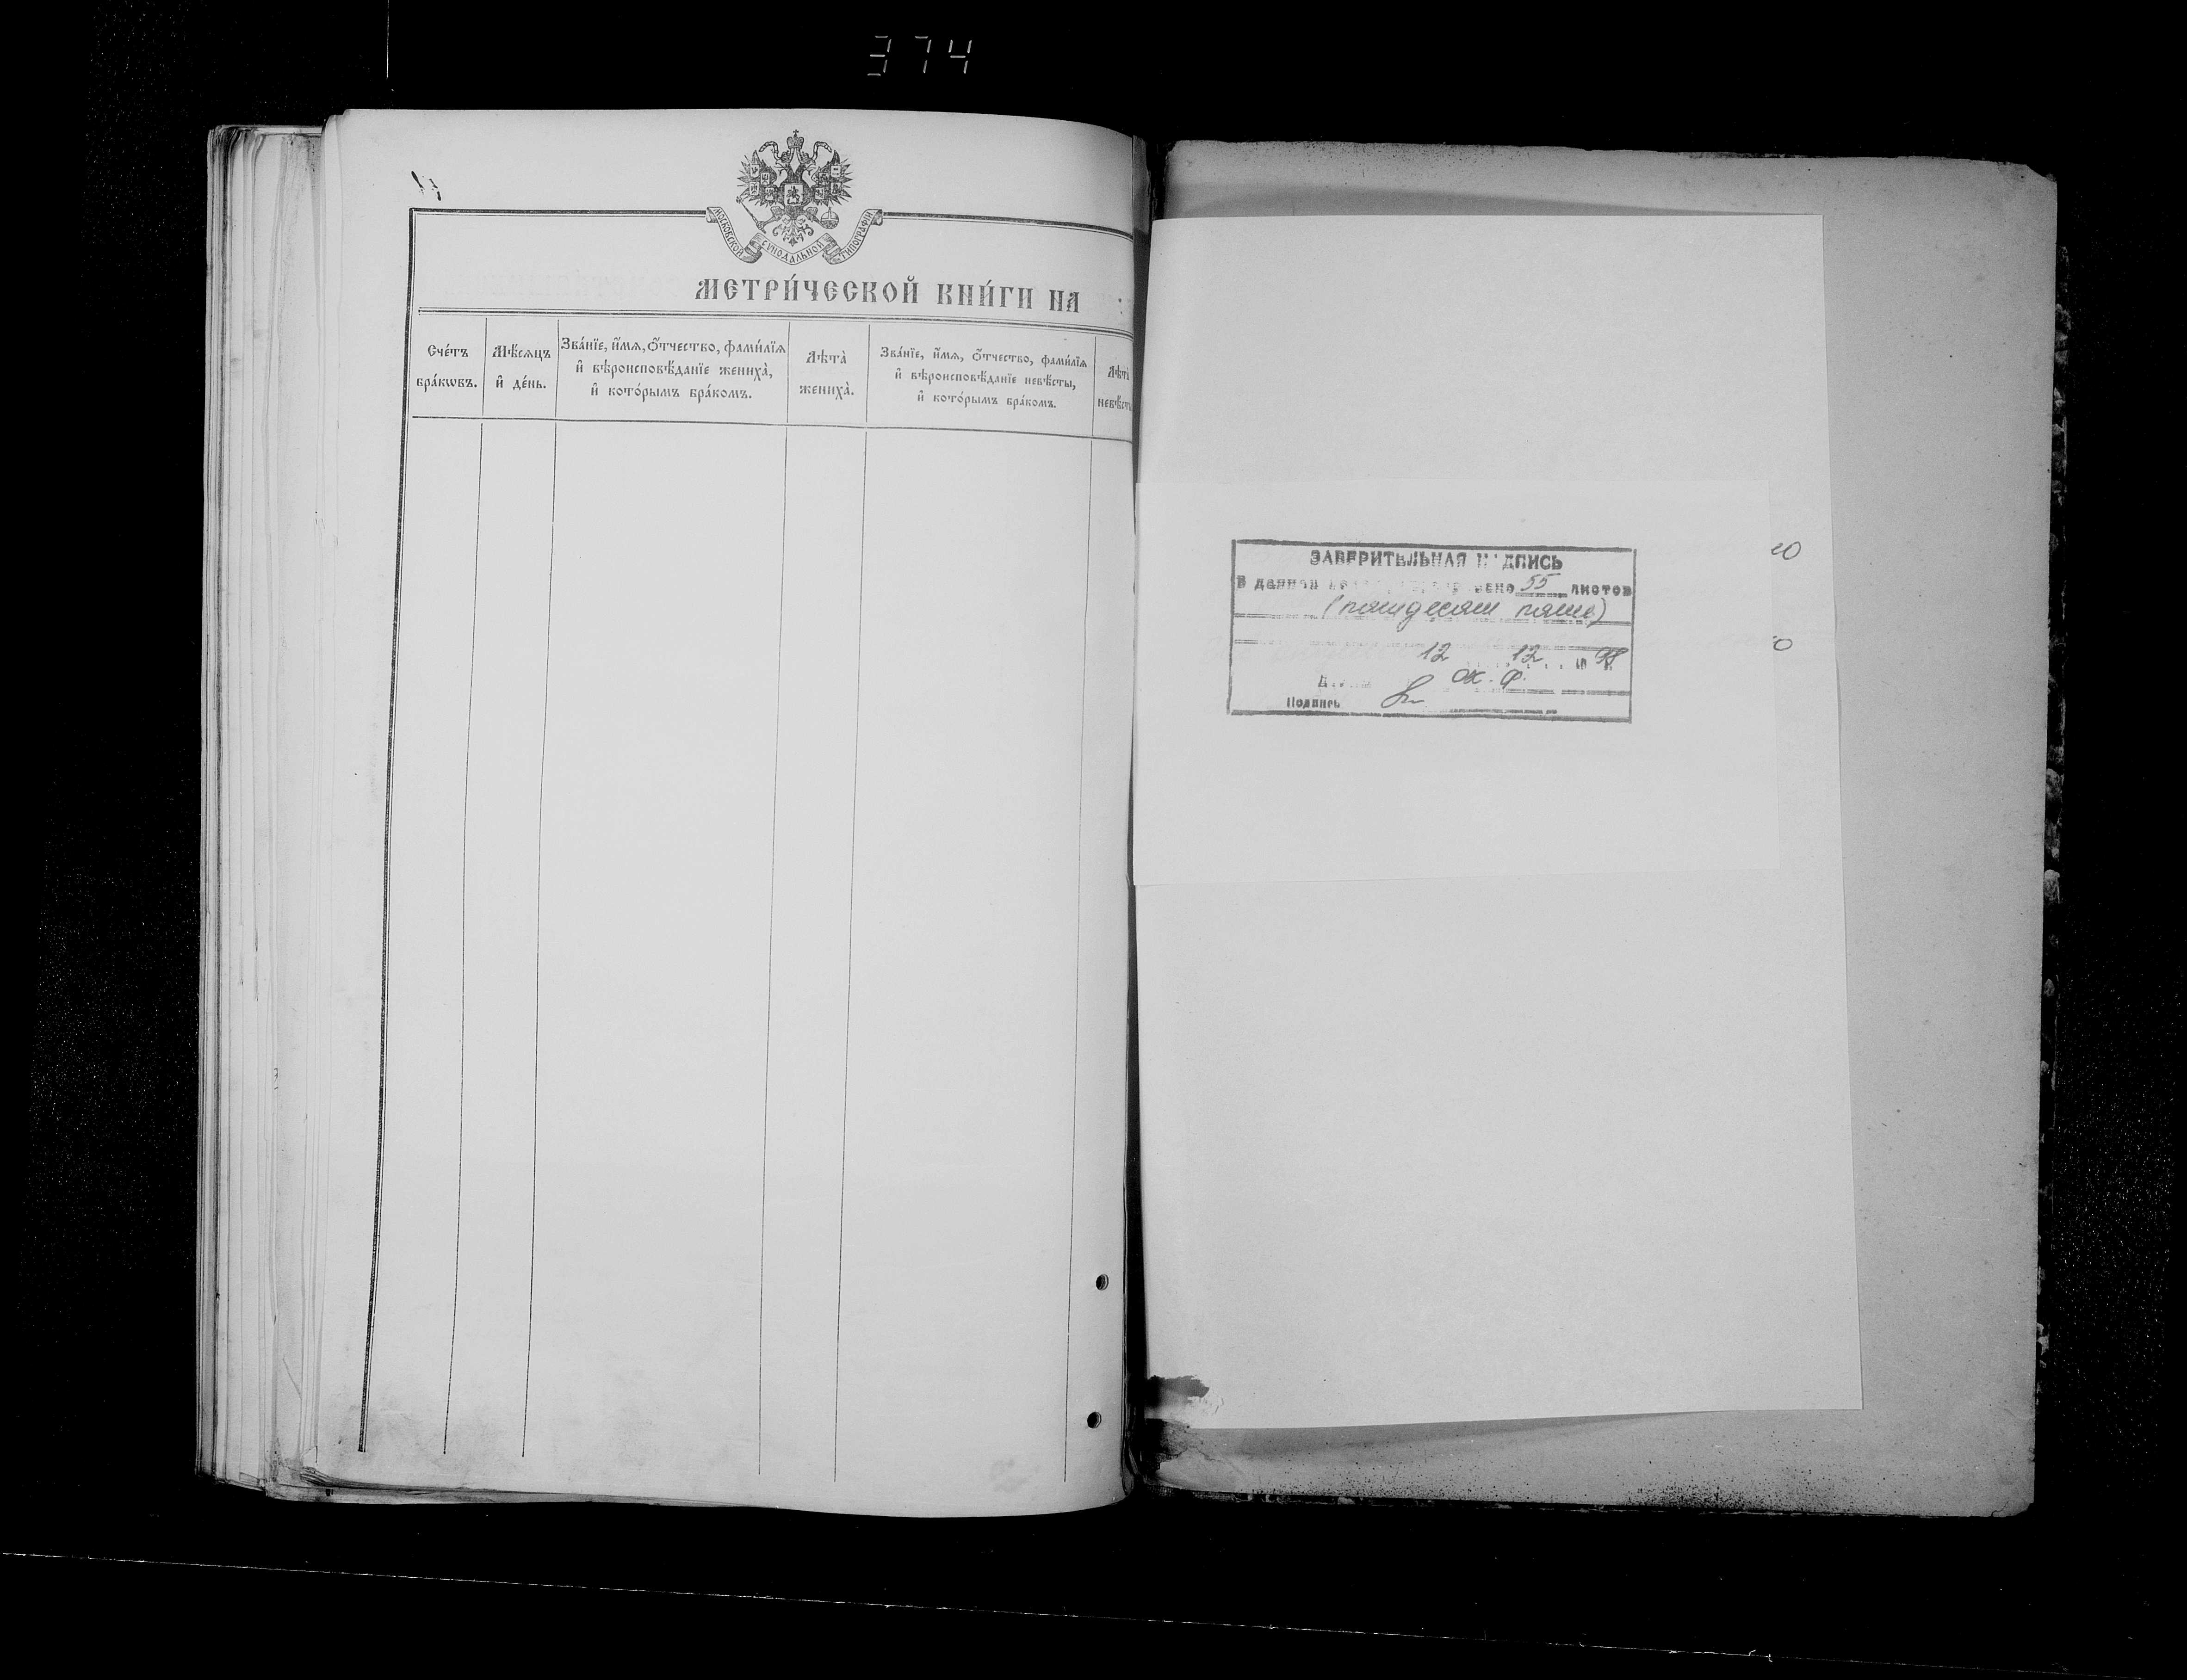 374
МОСКОВСКОЙ СѴНОДАЛЬНОЙ ТИПОГРАФІИ
МЕТРИ́ЧЕСКОЙ КНИ́ГИ НА
Сче́тъ
бра́кѡвъ.
Мѣ́сѧцъ
и҆ де́нь.
Зва́нїе, и҆́мѧ, ѻ҆́тчество, фами́лїѧ
и҆ вѣроисповѣ́данїе жениха̀,
и҆ кото́рымъ бра́комъ.
Лѣта̀
жениха̀.
Зва́нїе, и҆́мѧ, ѻ҆́тчество, фами́лїѧ
и҆ вѣроисповѣ́данїе невѣ́сты,
и҆ кото́рымъ бра́комъ.
Лѣта̀
невѣ́сты
ЗАВЕРИТЕЛЬНАЯ НАДПИСЬ
В данной 55 листов
(пятьдесят пять)
12 12 98
ох. ф.
Подпись